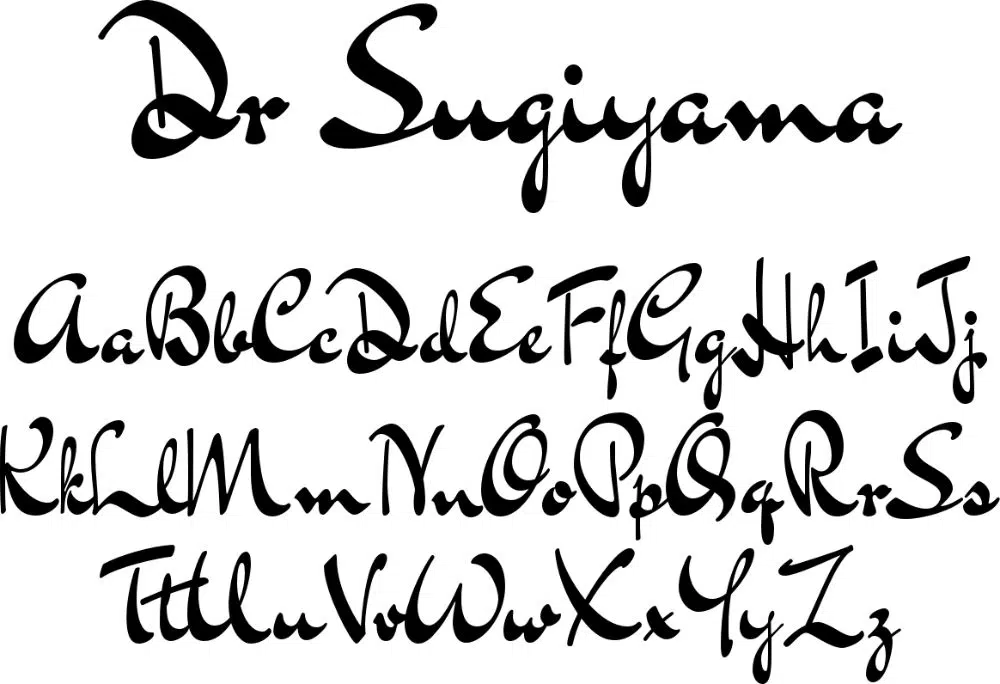 Dr Sugiyama
AaBbCcDdEeFfGgHhIiJj
KkLlMmNnOoPpQqRrSs
TtUuVvWwXxYyZz